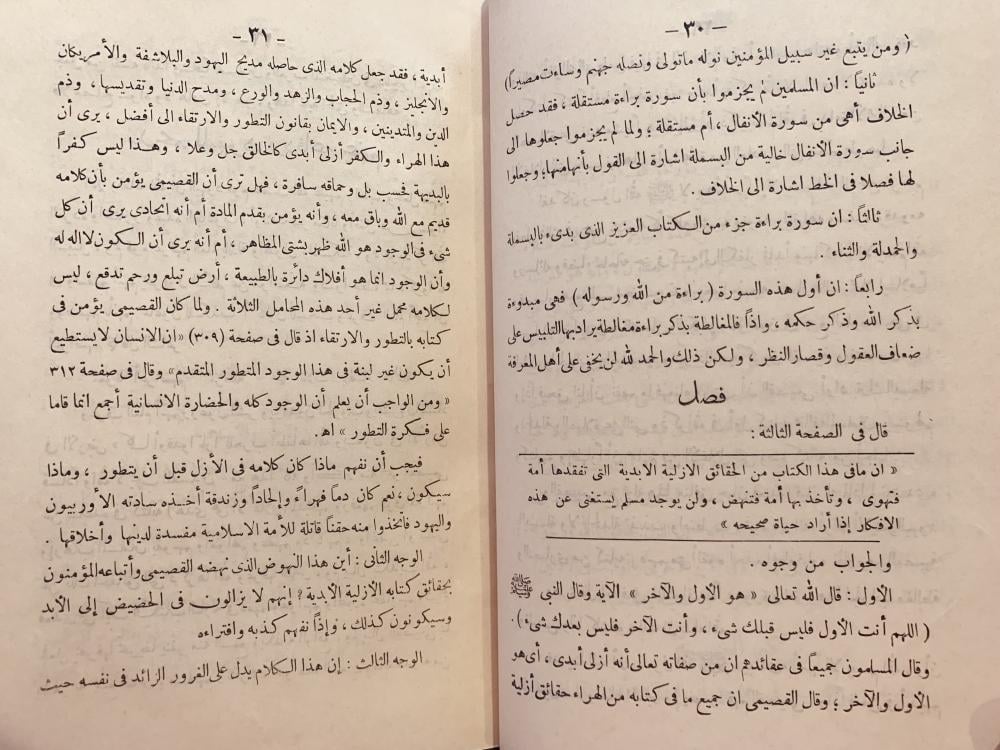 — ٣٠ —
( ومن يتبع غير سبيل المؤمنين نوله ماتولى ونصله جهنم وساءت مصيراً )
ثانياً : ان المسلمين لم يجزموا بأن سورة براءة مستقلة ، فقد حصل
الخلاف أهى من سورة الأنفال ، أم مستقلة ؛ ولما لم يجزموا جعلوها الى
جانب سورة الأنفال خالية من البسملة اشارة الى القول بأنها منها ؛ وجعلوا
لها فصلا فى الخط اشارة الى الخلاف .
ثالثاً : ان سورة براءة جزء من الكتاب العزيز الذى بدىء بالبسملة
والحمدلة والثناء .
رابعاً : ان أول هذه السورة ( براءة من الله ورسوله ) فهى مبدوءة
بذكر الله وذكر حكمه ، واذاً فالمغالطة بذكر براءة مغالطة يراد بها التلبيس على
ضعاف العقول وقصار النظر ، ولكن ذلك والحمد لله لن يخفى على أهل المعرفة
فصل
قال فى الصفحة الثالثة :
« ان مافى هذا الكتاب من الحقائق الازلية الابدية التى تفقدها أمة
فتهوى ، وتأخذ بها أمة فتنهض ، ولن يوجد مسلم يستغنى عن هذه
الافكار إذا أراد حياة صحيحه »
والجواب من وجوه .
الأول : قال الله تعالى « هو الأول والآخر » الآية وقال النبي ﷺ
( اللهم أنت الأول فليس قبلك شىء ، وأنت الآخر فليس بعدك شىء ) .
وقال المسلمون جميعاً فى عقائدهم ان من صفاته تعالى أنه أزلى أبدى ، أى هو
الأول والآخر ؛ وقال القصيمى ان جميع ما فى كتابه من الهراء حقائق أزلية
— ٣١ —
أبدية ، فقد جعل كلامه الذى حاصله مديح اليهود والبلاشفة والأمريكان
والانجليز ، وذم الحجاب والزهد والورع ، ومدح الدنيا وتقديسها ، وذم
الدين والمتدينين ، والايمان بقانون التطور والارتقاء الى أفضل ، يرى أن
هذا الهراء والكفر أزلى أبدى كالخالق جل وعلا ، وهذا ليس كفراً
بالبديهة فحسب بل وحماقه سافرة ، فهل ترى أن القصيمى يؤمن بأن كلامه
قديم مع الله وباق معه ، وأنه يؤمن بقدم المادة أم أنه اتحادى يرى أن كل
شىء فى الوجود هو الله ظهر بشتى المظاهر ، أم أنه يرى أن الكون لا اله له
وأن الوجود انما هو أفلاك دائرة بالطبيعة ، أرض تبلع ورحم تدفع ، ليس
لكلامه محمل غير أحد هذه المحامل الثلاثة . ولما كان القصيمى يؤمن فى
كتابه بالتطور والارتقاء اذ قال فى صفحة (٣٠٩) «ان الانسان لا يستطيع
أن يكون غير لبنة فى هذا الوجود المتطور المتقدم» وقال فى صفحة ٣١٢
« ومن الواجب أن يعلم أن الوجود كله والحضارة الانسانية أجمع انما قاما
على فكرة التطور » اهـ .
فيجب أن نفهم ماذا كان كلامه فى الأزل قبل أن يتطور ، وماذا
سيكون ، نعم كان دماً فهراءً وإلحاداً وزندقة أخذه سادته الأوربيون
واليهود فاتخذوا منه حقناً قاتلة للأمة الاسلامية مفسدة لدينها وأخلاقها .
الوجه الثانى : أين هذا النهوض الذى نهضه القصيمى وأتباعه المؤمنون
بحقائق كتابه الازلية الأبدية ? إنهم لا يزالون فى الحضيض إلى الأبد
وسيكونون كذلك ، وإذاً نفهم كذبه وافتراءه
الوجه الثالث : إن هذا الكلام يدل على الغرور الزائد فى نفسه حيث